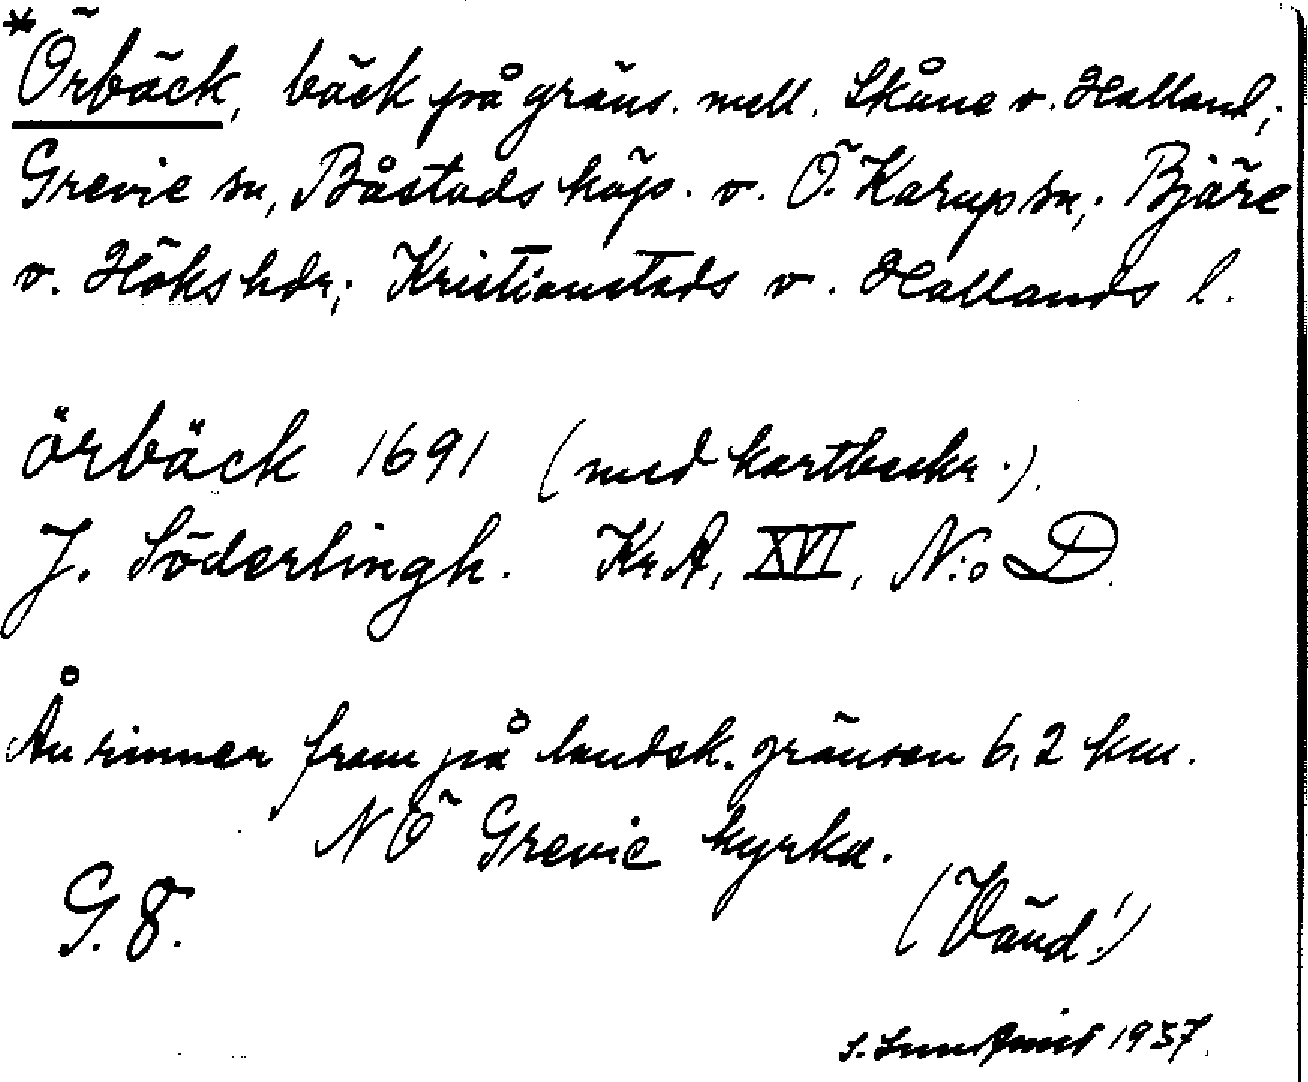 *Örbäck, bäck på gräns. mell. Skåne o. Halland;
Grevie sn, Båstads köp. o. Ö. Karup sn; Bjäre
o. Höks hdr; Kristianstads o. Hallands l.
örbäck 1691 (med kartbeskr.).
J. Söderlingh. KrA, XVI, N:o D.
Ån rinner fram på landsk. gränsen 6,2 km.
NÖ Grevie kyrka.
G. 8.
(Vänd!)
S. Sundqvist 1937.